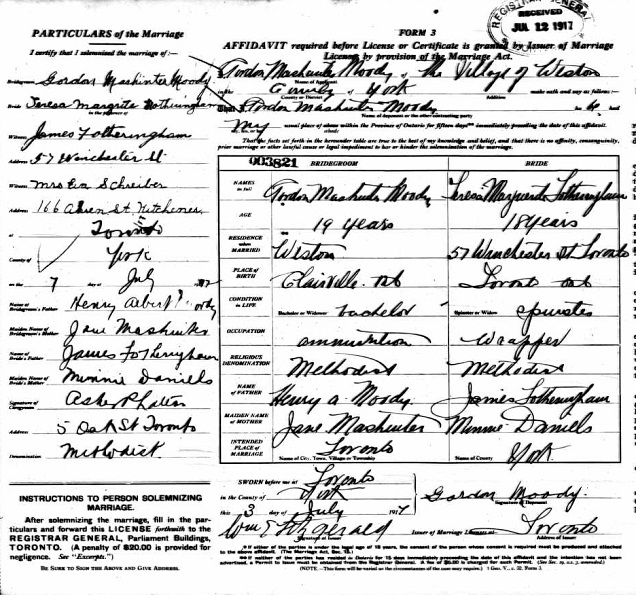 PARTICULARS of the Marriage
I certify that I solemnized the marriage of :—
Bridegroom Gordon Mashinter Moody
Bride Teresa Margrita Fotheringham
in the presence of
Witness James Fotheringham
Address 57 Winchester St
Witness Mrs Eva Schreiber
Address 166 St Kitchener
at Toronto
County of York
on the 7 day of July 1917
Name of Bridegroom's Father Henry Albert Moody
Maiden Name of Bridegroom's Mother Jane Mashinter
Name of Bride's Father James Fotheringham
Maiden Name of Bride's Mother Minnie Daniels
Signature of Clergyman
Address 5 Oak St Toronto
Denomination Methodist
INSTRUCTIONS TO PERSON SOLEMNIZING MARRIAGE.
After solemnizing the marriage, fill in the particulars and forward this LICENSE forthwith to the REGISTRAR GENERAL, Parliament Buildings, TORONTO. (A penalty of $20.00 is provided for negligence. See "Excerpts.")
BE SURE TO SIGN THE ABOVE AND GIVE ADDRESS.
REGISTRAR GENERAL
RECEIVED
JUL 12 1917
FORM 3
AFFIDAVIT required before License or Certificate is granted by Issuer of Marriage
Licenses by provision of the Marriage Act.
I, Gordon Mashinter Moody of the Village of Weston
in the County of York make oath and say as follows :—
Gordon Mashinter Moody
my usual place of abode within the Province of Ontario for fifteen days immediately preceding the date of this affidavit.
That the facts set forth in the hereunder table are true to the best of my knowledge and belief, and that no affinity, consanguinity,
prior marriage or other lawful cause or legal impediment to bar or hinder the solemnization of the marriage.
003821 BRIDEGROOM BRIDE
NAMES in full Gordon Mashinter Moody Teresa Marguerite Fotheringham
AGE 19 years 18 years
RESIDENCE when MARRIED Weston 57 Winchester St Toronto
PLACE of BIRTH Clairville Ont Toronto Ont
CONDITION in LIFE Bachelor or Widower bachelor Spinster or Widow spinster
OCCUPATION ammunition Wrapper
RELIGIOUS DENOMINATION Methodist Methodist
NAME OF FATHER Henry A. Moody James Fotheringham
MAIDEN NAME of MOTHER Jane Mashinter Minnie Daniels
INTENDED PLACE of MARRIAGE Toronto York
Name of City, Town, Village or Township Name of County
SWORN before me at Toronto
in the County of York
this 3 day of July 1917
Gordon Moody.
Signature of Deponent
Wm Fitzgerald
Signature of Issuer
Issuer of Marriage Licenses at Toronto
If either of the parties is under the legal age of 18 years, the consent of the person whose consent is required must be produced and attached to the above affidavit. (The Marriage Act, Sec. 15.)
If neither of the parties has resided in Ontario for 15 days immediately preceding the date of intention and the intention has not been advertised, a Permit to issue must be obtained from the Registrar General. A fee of $5.00 is charged for such Permit.
(NOTE.—This form will be varied as the circumstances of the case may require.)